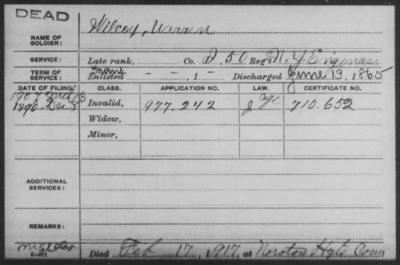 DEAD
NAME OF SOLDIER: Wilcox, Warren
SERVICE: Late rank, Co. D, 50 Reg't N.Y. Engineers
TERM OF SERVICE: Enlisted - -, 1 - Discharged June 13, 1865
DATE OF FILING. CLASS. APPLICATION NO. LAW. CERTIFICATE NO.
1890 Dec Invalid, 977.242 J age 710.652
Widow,
Minor,
ADDITIONAL SERVICES:
REMARKS:
Died Feb 17, 1917, at Noroton Hgts Conn